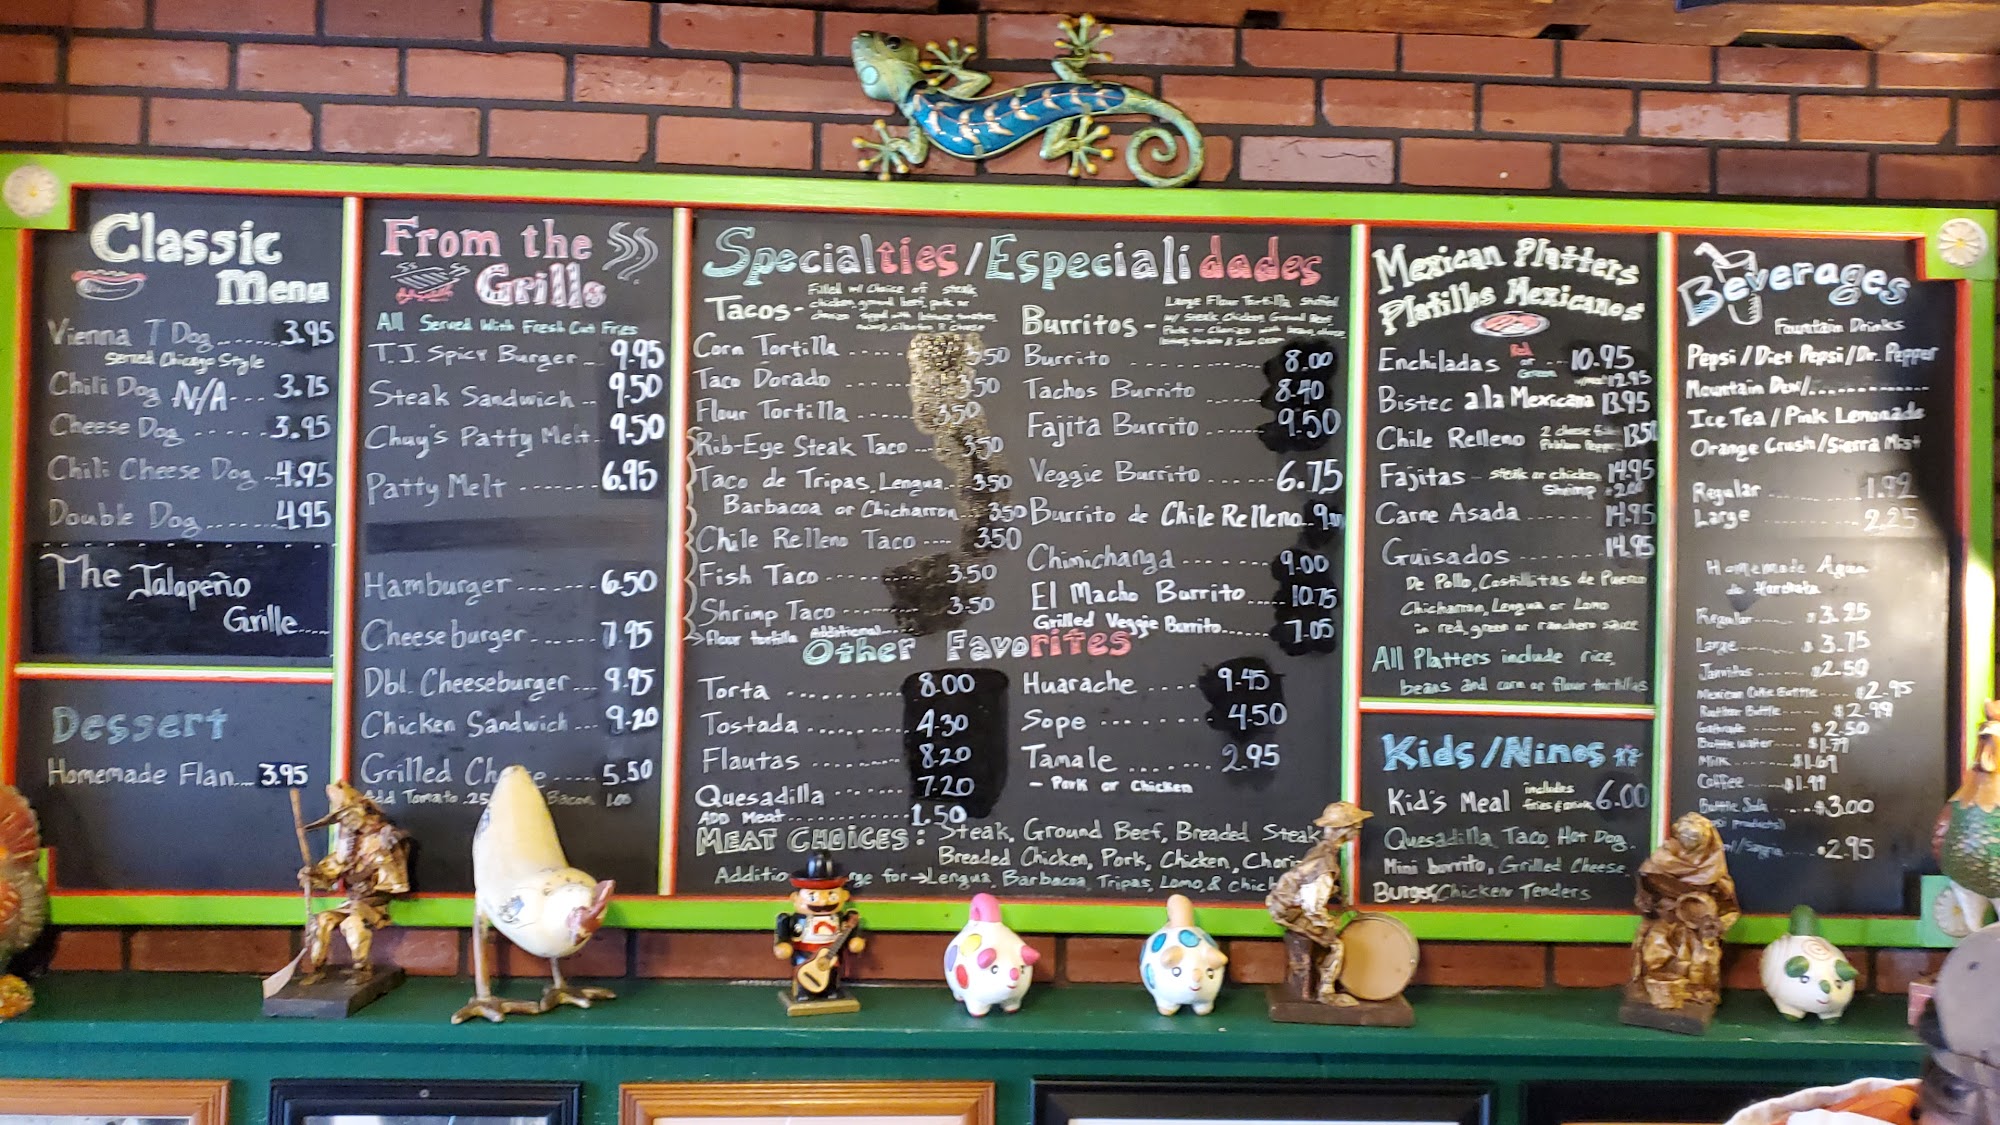 Classic
Menu
Vienna T Dog....... 3.95
Served Chicago Style
Chili Dog N/A--- 3.75
Cheese Dog ..... 3.95
Chili Cheese Dog -- 4.95
Double Dog....... 4.95
The Jalapeño
Grille.....
Dessert
Homemade Flan.... 3.95
From the
Grills
All Served With Fresh Cut Fries
T.J. Spicy Burger -- 9.95
Steak Sandwich .. 9.50
Chuy's Patty Melt.. 9.50
Patty Melt ....... 6.95
Hamburger ...... 6.50
Cheeseburger...... 7.95
Dbl. Cheeseburger.... 9.95
Chicken Sandwich ... 9.20
Grilled ..... 5.50
Add Tomato .25 Bacon 1.00
Specialties/Especialidades
Tacos- Filled w/ Choice of steak,
chicken, ground beef, pork or
Corn Tortilla ....
Taco Dorado ....
Flour Tortilla .... 3.50
Rib-Eye Steak Taco ... 3.50
Taco de Tripas, Lengua.. 3.50
Barbacoa or Chicharron... 3.50
Chile Relleno Taco .... 3.50
Fish Taco ...... 3.50
Shrimp Taco ....... 3.50
flour tortilla Additional......
Burritos - Large Flour Tortilla Stuffed
w/ Steak, Chicken, Ground Beef,
Burrito ......... 8.00
Tachos Burrito ..... 8.40
Fajita Burrito ..... 9.50
Veggie Burrito ...... 6.75
Burrito de Chile Relleno..
Chimichanga ..... 9.00
El Macho Burrito..... 10.75
Grilled Veggie Burrito....... 7.05
Other Favorites
Torta .......... 8.00
Tostada .......... 4.30
Flautas ......... 8.20
Quesadilla ....... 7.20
ADD Meat........... 1.50
Huarache .... 9.45
Sope ........ 4.50
Tamale ....... 2.95
- Pork or Chicken
MEAT CHOICES: Steak, Ground Beef, Breaded Steak
Breaded Chicken, Pork, Chicken,
Lengua, Barbacoa, Tripas, Lomo, &
Mexican Platters
Platillos Mexicanos
Enchiladas Red or Green ... 10.95
12.95
Bistec a la Mexicana 13.95
Chile Relleno 2 cheese
Fajitas - steak or chicken 14.95
Shrimp + 2.00
Carne Asada ....... 14.95
Guisados ........ 14.95
De Pollo, Costillitas de Puerco
Chicharron, Lengua or Lomo
in red, green or ranchero sauce
All Platters include rice,
beans and corn or flour tortillas
Kids/Ninos
Kid's Meal includes fries & drink 6.00
Quesadilla, Taco, Hot Dog,
Mini burrito, Grilled Cheese,
Burger, Chicken Tenders
Beverages
Fountain Drinks
Pepsi/Diet Pepsi/Dr. Pepper
Mountain Dew/..............
Ice Tea/Pink Lemonade
Orange Crush/Sierra Mist
Regular ......... 1.99
Large ......... 2.25
Homemade Agua
de Horchata
Regular..... $3.25
Large......... $3.75
Jarritos ....... $2.50
Mexican Coke Bottle.... $2.95
$2.99
Gatorade ........ $2.50
Bottle Water.... $1.79
Milk ....... $1.69
Coffee.....$1.99
Bottle Soda ..... $3.00
2.95